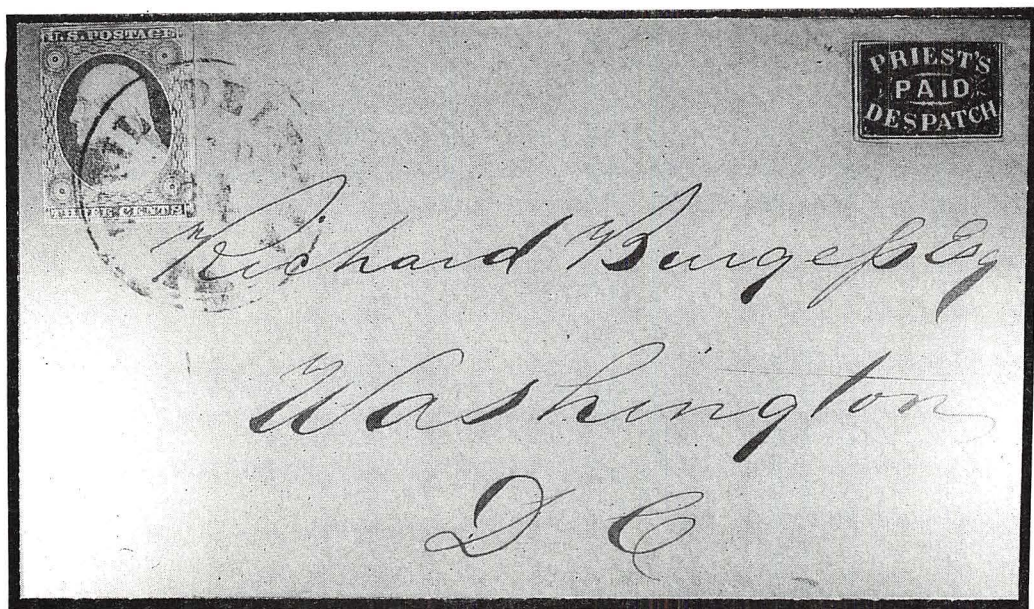 U.S. POSTAGE
THREE CENTS
PRIEST'S
PAID
DESPATCH
Richard Burgess Esq
Washington
D C